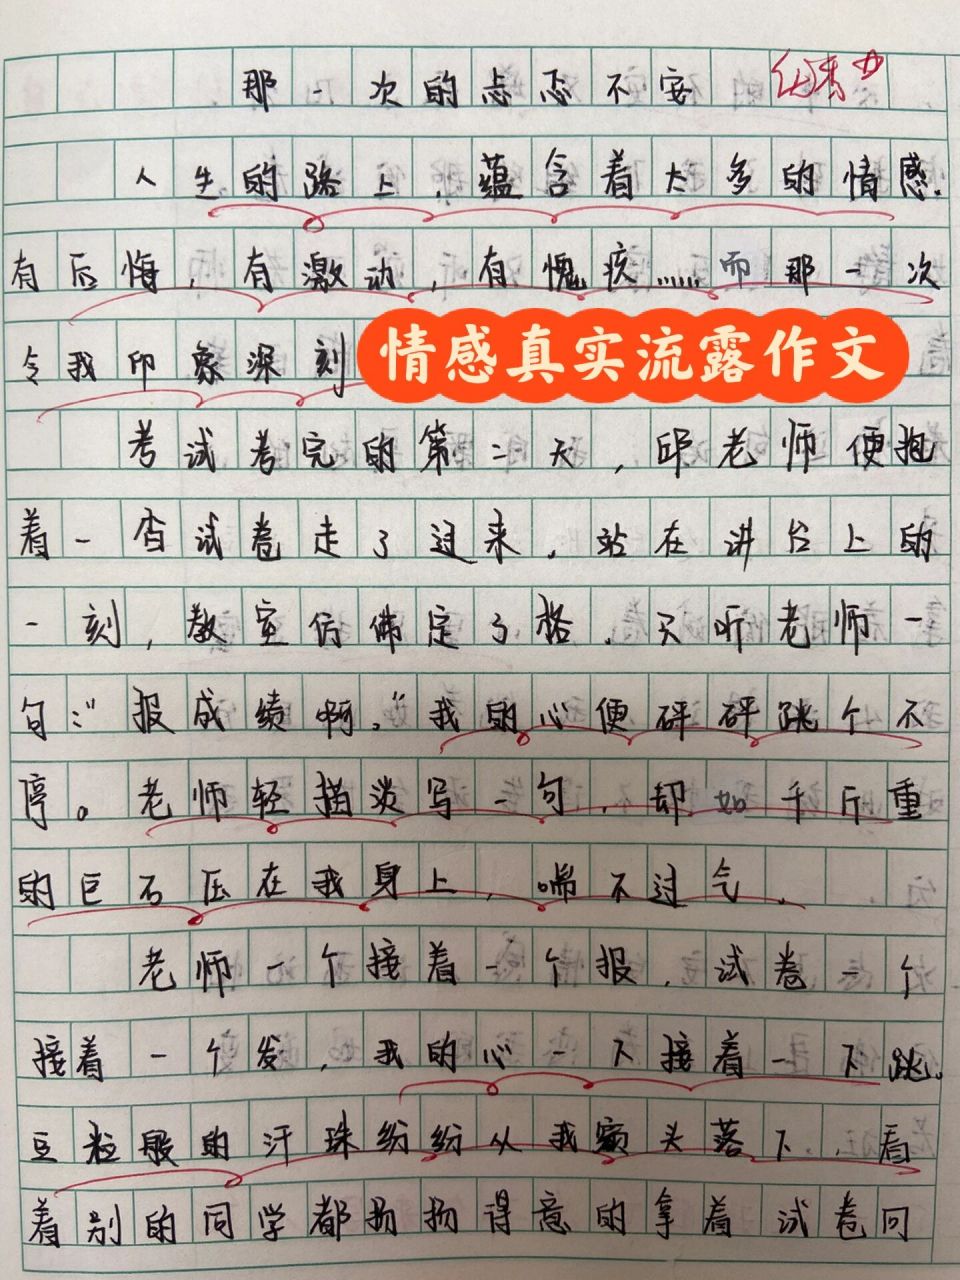 那一次的忐忑不安 优秀
人生的路上，蕴含着太多的情感，
有后悔，有激动，有愧疚……而那一次
令我印象深刻
情感真实流露作文
考试考完的第二天，邱老师便抱
着一沓试卷走了过来，站在讲台上的
一刻，教室仿佛定了格，只听老师一
句：“报成绩啊。”我的心便砰砰跳个不
停。老师轻描淡写一句，却如千斤重
的巨石压在我身上，喘不过气。
老师一个接着一个报，试卷一个
接着一个发，我的心一下接着一下跳。
豆粒般的汗珠纷纷从我额头落下，看
着别的同学都扬扬得意的拿着试卷回